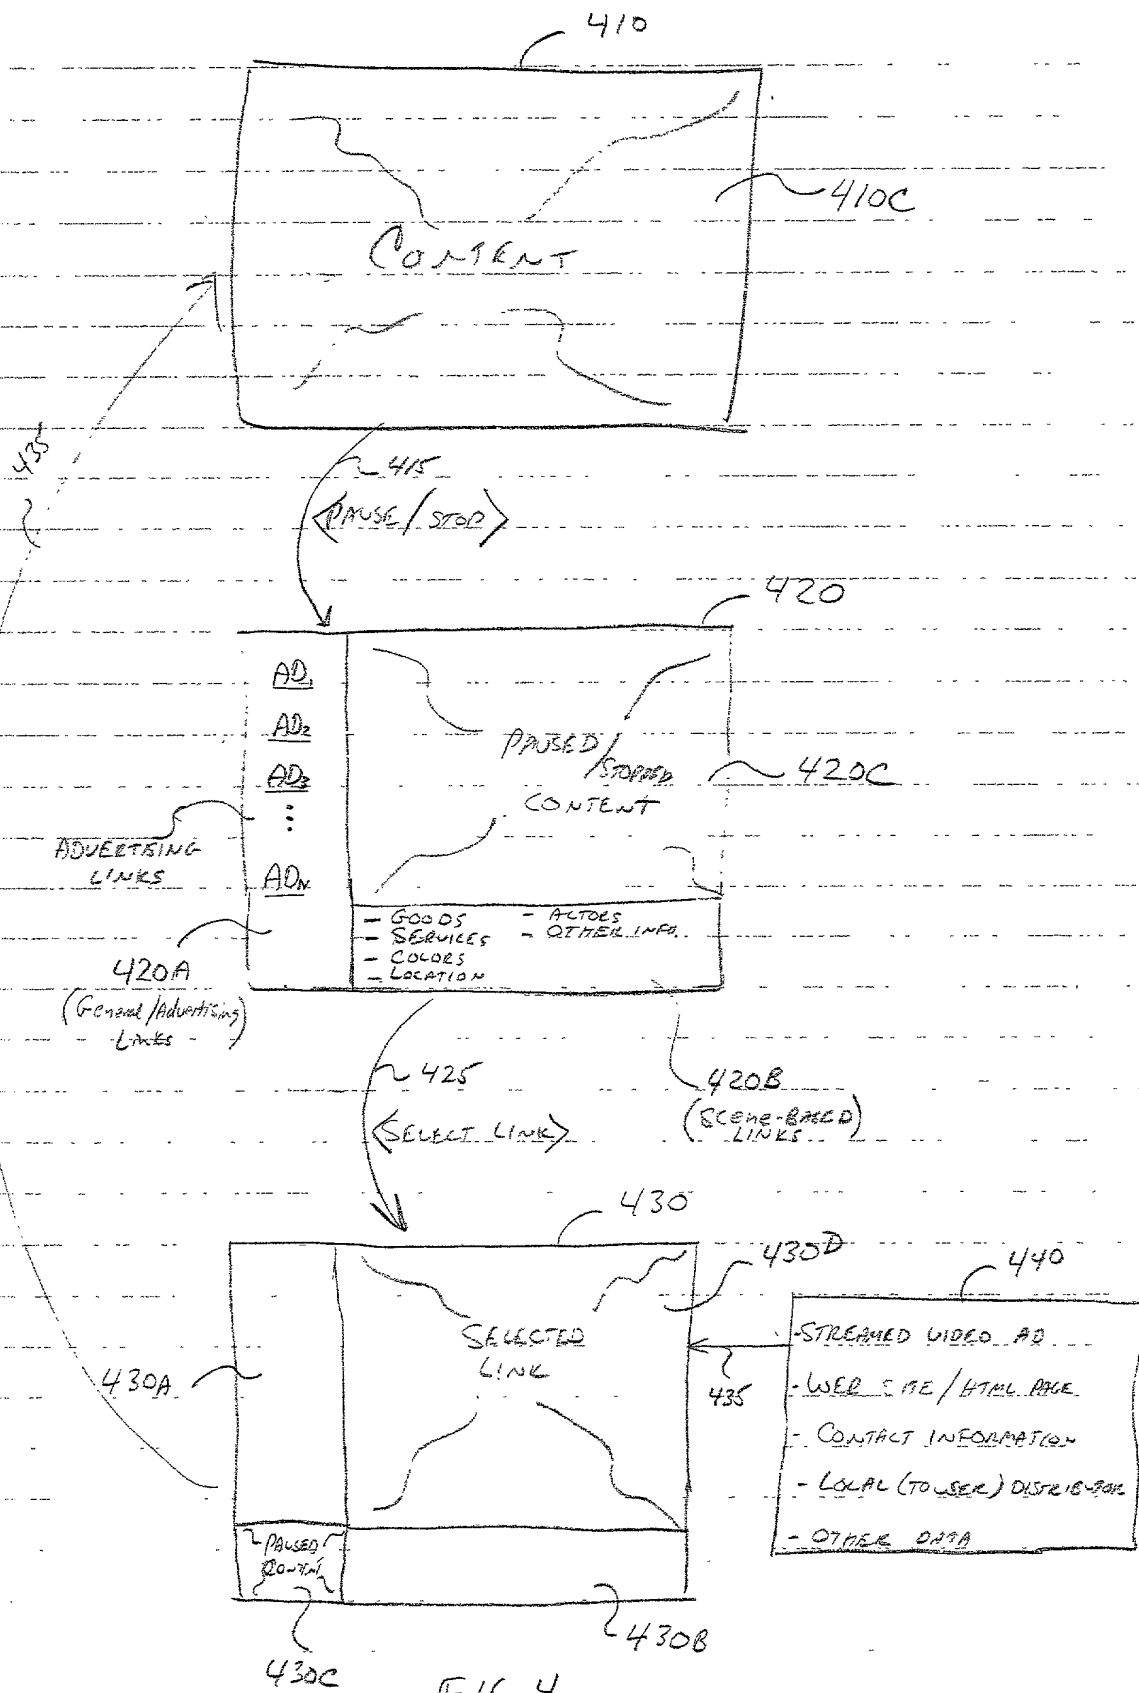 410
410C
CONTENT
435
415
<PAUSE/STOP>
420
AD1
AD2
AD3
ADN
PAUSED/
STOPPED
CONTENT
420C
ADVERTISING
LINKS
- GOODS
- SERVICES
- COLORS
- LOCATION
- ACTORS
- OTHER INFO.
420A
(General/Advertising
LINKS)
425
<SELECT LINK>
420B
(SCENE-BASED
LINKS)
430
430D
440
SELECTED
LINK
430A
435
-STREAMED VIDEO AD
-WEB SITE/HTML PAGE
- CONTACT INFORMATION
- LOCAL (TO USER) DISTRIBUTOR
- OTHER DATA
PAUSED
CONTENT
430C
430B
FIG. 4